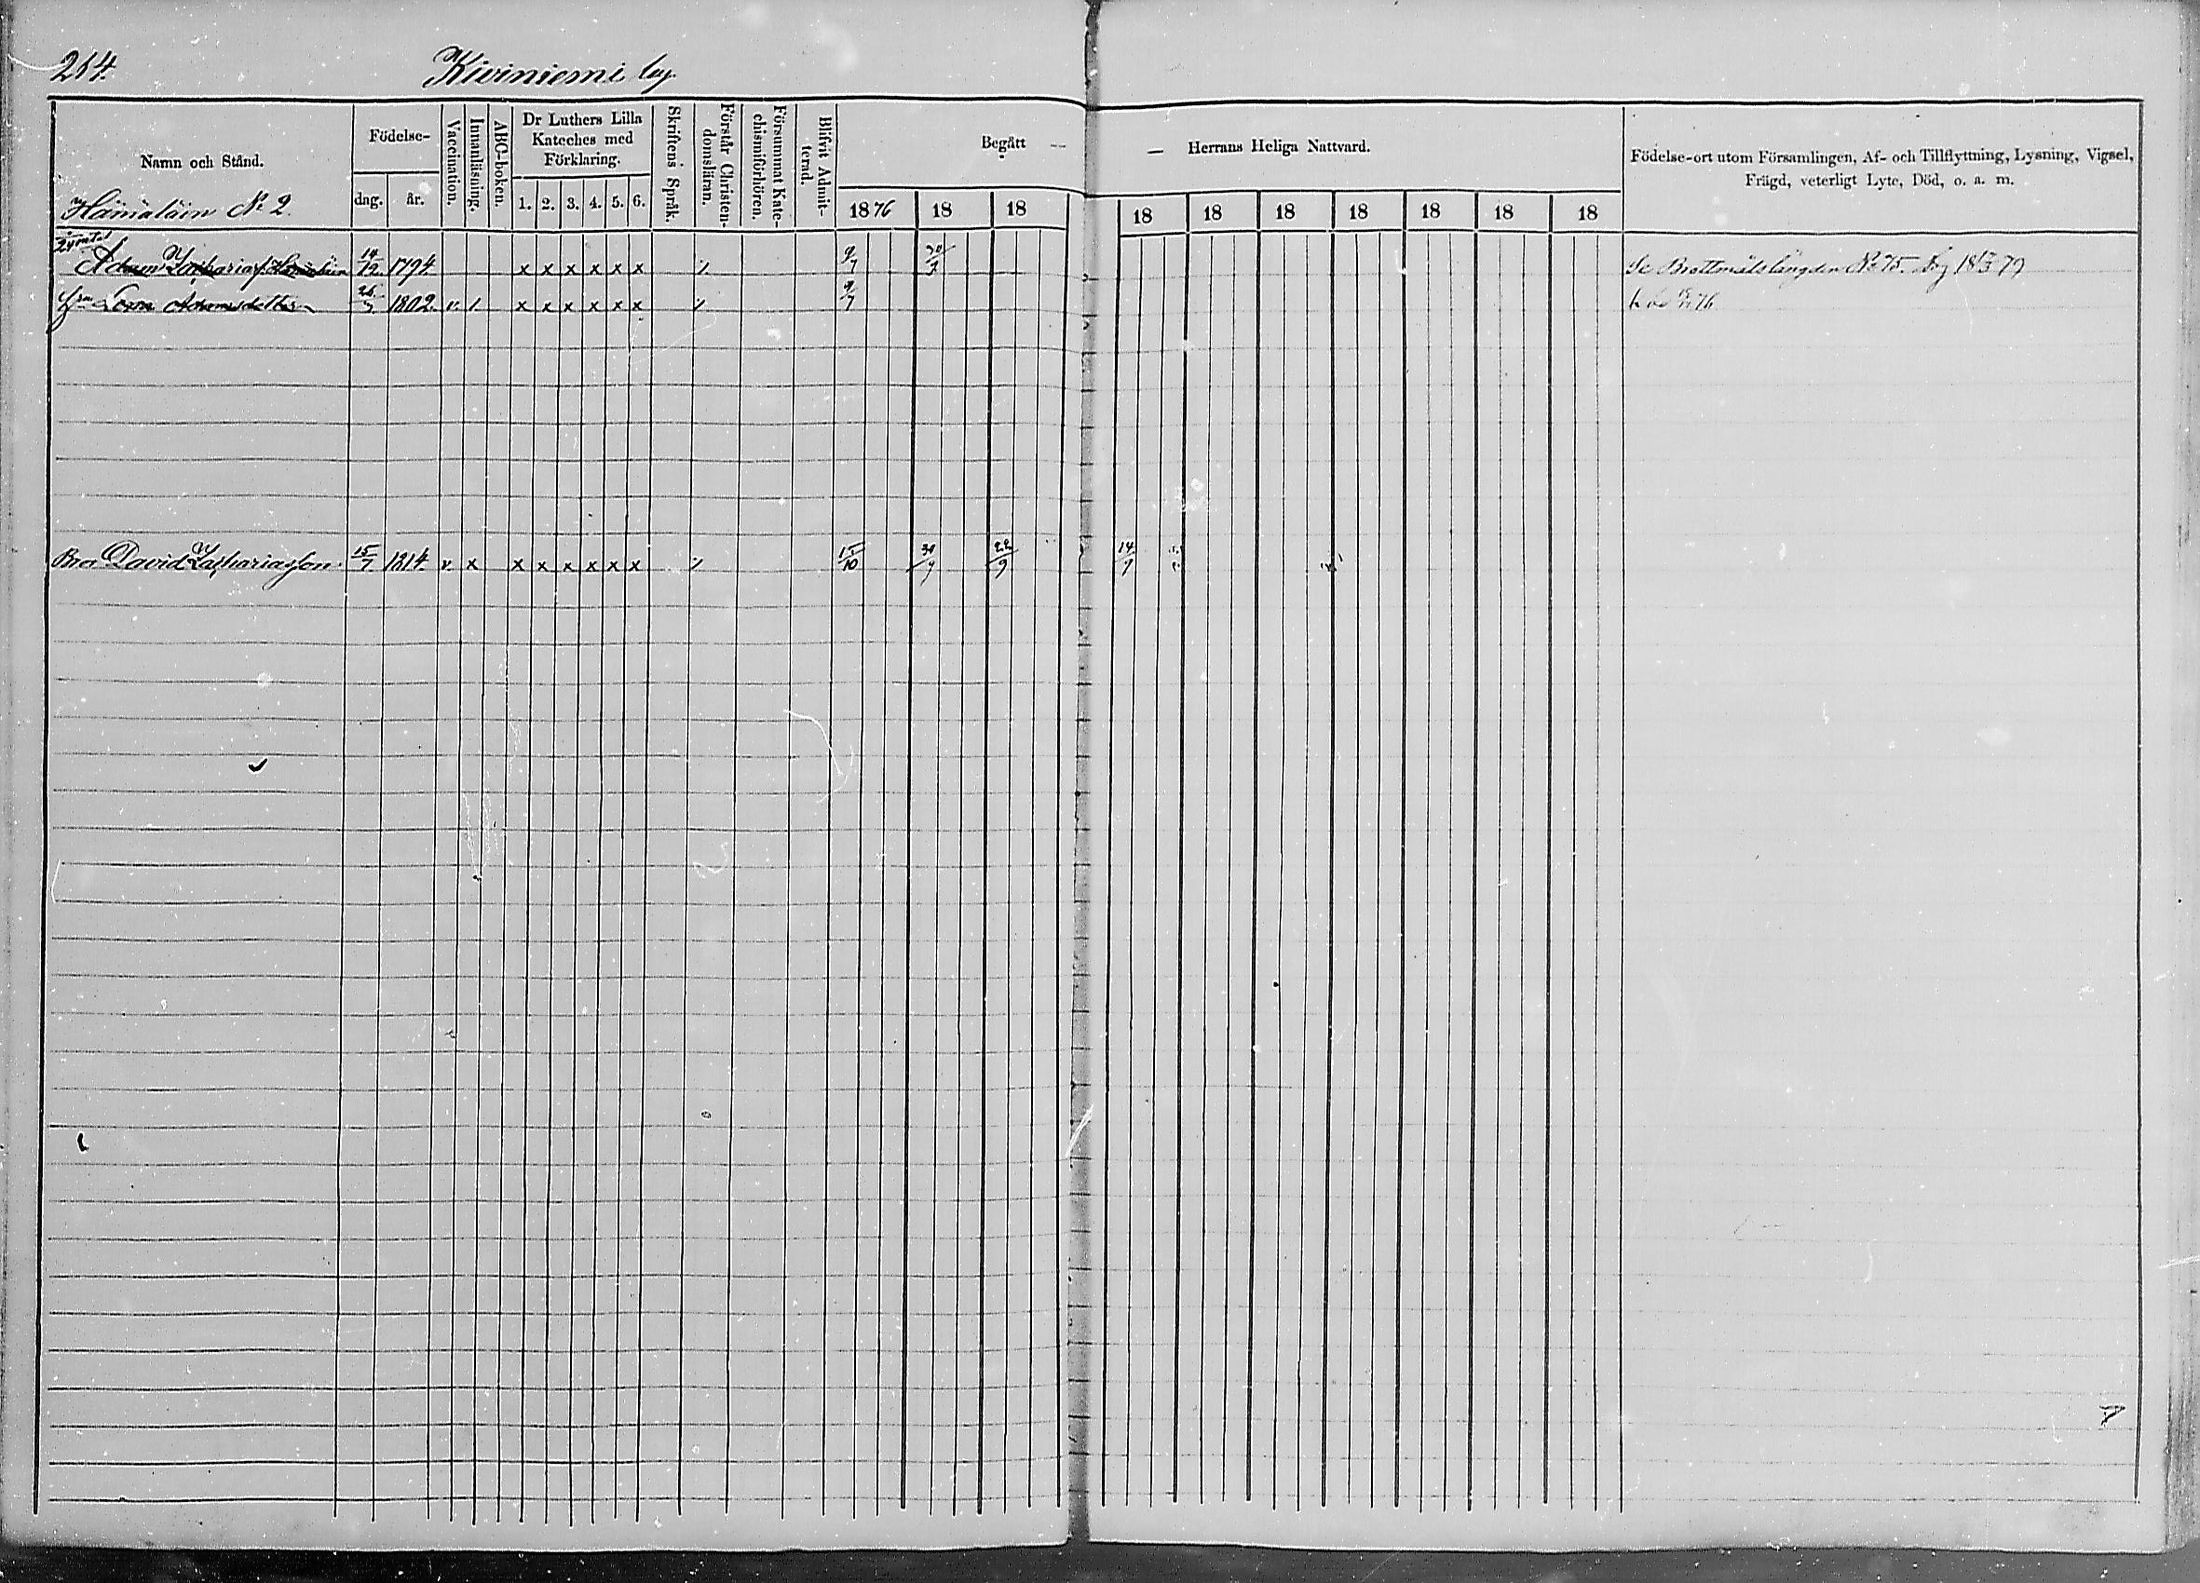 214.
Kiviniemi by
Namn och Stånd.
Födelse-
dag.
år.
Vaccination.
Innanläsning.
ABC-boken.
Dr Luthers Lilla
Kateches med
Förklaring.
1. 2. 3. 4. 5. 6.
Skriftens Språk.
Förstår Christen-
domsläran.
Försummat Kate-
chismiförhören.
Blifvit Admit-
terad.
Begått — — Herrans Heliga Nattvard.
1876 18 18 18 18 18 18 18 18 18
Födelse-ort utom Församlingen, Af- och Tillflyttning, Lysning, Vigsel,
Frägd, veterligt Lyte, Död, o. a. m.
Hämäläin No 2.
Adam Zachariasson Hämäläin 14/12 1794 x x x x x x 9/7 Se Brottmålslängden No 75.
Adamsdotter 1802 v. x x x x x x 9/7
Bror David Zachariasson 15/7 1814 v. x x x x x x x 15/10 30/9 22/9 14/9